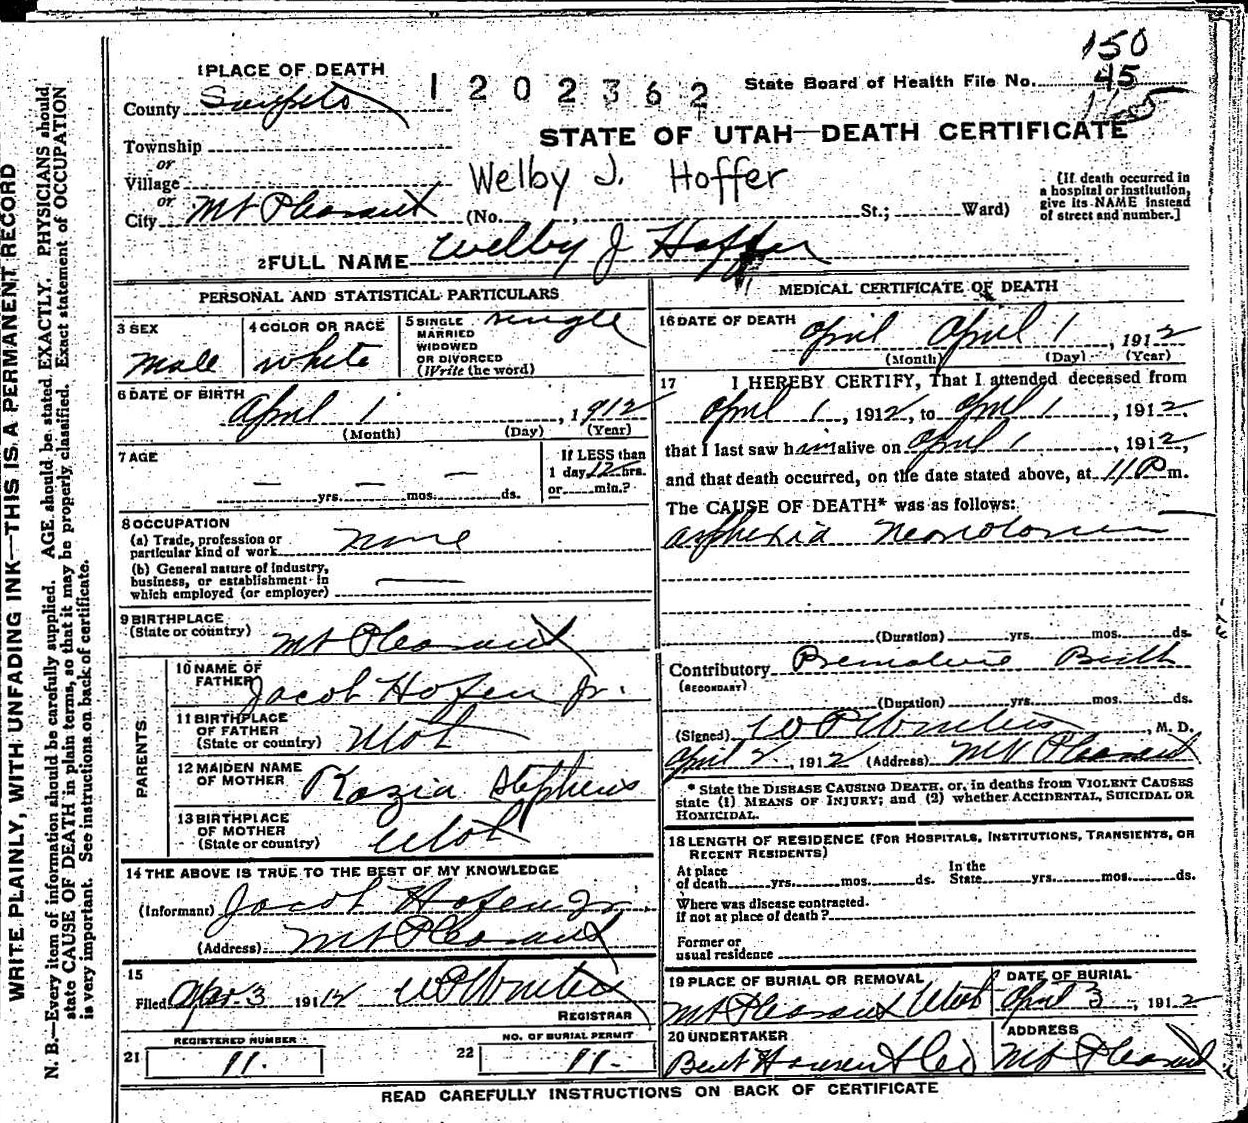 150
1 PLACE OF DEATH
1202362
State Board of Health File No. 45
County Sanpete
STATE OF UTAH—DEATH CERTIFICATE
Township
or
Village
or
City Mt Pleasant
Welby J. Hoffer
(No. , St.; Ward)
(If death occurred in
a hospital or institution,
give its NAME instead
of street and number.]
2 FULL NAME Welby J Hoffer
PERSONAL AND STATISTICAL PARTICULARS
3 SEX
male
4 COLOR OR RACE
white
5 SINGLE single
MARRIED
WIDOWED
OR DIVORCED
(Write the word)
6 DATE OF BIRTH
April 1 , 1912
(Month) (Day) (Year)
7 AGE
— yrs. — mos. — ds.
If LESS than
1 day 12 hrs.
or min.?
8 OCCUPATION
(a) Trade, profession or
particular kind of work none
(b) General nature of industry,
business, or establishment in
which employed (or employer) —
9 BIRTHPLACE
(State or country) Mt Pleasant
PARENTS
10 NAME OF
FATHER Jacob Hofen Jr.
11 BIRTHPLACE
OF FATHER
(State or country) Utah
12 MAIDEN NAME
OF MOTHER Kazia Stephens
13 BIRTHPLACE
OF MOTHER
(State or country) Utah
14 THE ABOVE IS TRUE TO THE BEST OF MY KNOWLEDGE
(Informant) Jacob Hofen Jr.
(Address) Mt Pleasant
15
Filed Apr. 3 1912
REGISTRAR
REGISTERED NUMBER
21 11.
NO. OF BURIAL PERMIT
22 11.
MEDICAL CERTIFICATE OF DEATH
16 DATE OF DEATH April April 1 , 1912
(Month) (Day) (Year)
17 I HEREBY CERTIFY, That I attended deceased from
April 1 , 1912, to April 1 , 1912,
that I last saw him alive on April 1 , 1912,
and that death occurred, on the date stated above, at 11 P m.
The CAUSE OF DEATH* was as follows:
(Duration) yrs. mos. ds.
Contributory Premature Birth
(SECONDARY)
(Duration) yrs. mos. ds.
(Signed) , M. D.
April 2, 1912 (Address) Mt Pleasant
* State the DISEASE CAUSING DEATH, or, in deaths from VIOLENT CAUSES
state (1) MEANS OF INJURY; and (2) whether ACCIDENTAL, SUICIDAL OR
HOMICIDAL.
18 LENGTH OF RESIDENCE (FOR HOSPITALS, INSTITUTIONS, TRANSIENTS, OR
RECENT RESIDENTS)
At place
of death yrs. mos. ds.
In the
State yrs. mos. ds.
Where was disease contracted.
If not at place of death?
Former or
usual residence
19 PLACE OF BURIAL OR REMOVAL
Mt Pleasant Utah
DATE OF BURIAL
April 3 , 1912
20 UNDERTAKER
ADDRESS
Mt Pleasant
READ CAREFULLY INSTRUCTIONS ON BACK OF CERTIFICATE
WRITE PLAINLY, WITH UNFADING INK—THIS IS A PERMANENT RECORD
N. B.—Every item of information should be carefully supplied. AGE should be stated EXACTLY. PHYSICIANS should
state CAUSE OF DEATH in plain terms, so that it may be properly classified. Exact statement of OCCUPATION
is very important. See instructions on back of certificate.